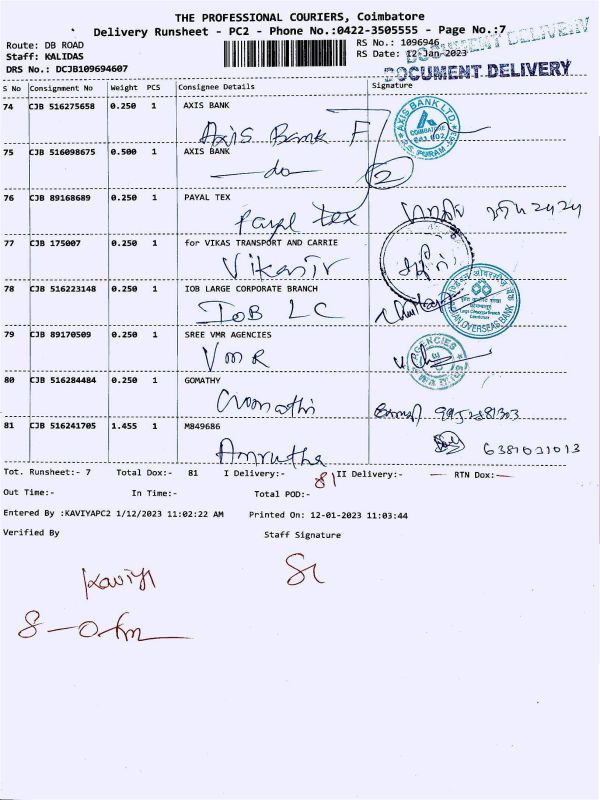 THE PROFESSIONAL COURIERS, Coimbatore
Delivery Runsheet - PC2 - Phone No.:0422-3505555 - Page No.:7
Route: DB ROAD
Staff: KALIDAS
DRS No.: DCJB109694607
RS No.: 1096946
RS Date: 12-Jan-2023
DOCUMENT DELIVERY
DOCUMENT DELIVERY
S No Consignment No Weight PCS Consignee Details Signature
74 CJB 516275658 0.250 1 AXIS BANK
Axis Bank
AXIS BANK LTD. COIMBATORE R.S. PURAM
75 CJB 516098675 0.500 1 AXIS BANK
do 2
76 CJB 89168689 0.250 1 PAYAL TEX
Payal tex
77 CJB 175007 0.250 1 for VIKAS TRANSPORT AND CARRIE
Vikas Tr
78 CJB 516223148 0.250 1 IOB LARGE CORPORATE BRANCH
IOB LC
INDIAN OVERSEAS BANK
79 CJB 89170509 0.250 1 SREE VMR AGENCIES
VMR
AGENCIES
80 CJB 516284484 0.250 1 GOMATHY
Gomathi
81 CJB 516241705 1.455 1 M849686
Amrutha
Tot. Runsheet:- 7 Total Dox:- 81 I Delivery:- 81 II Delivery:- RTN Dox:-
Out Time:- In Time:- Total POD:-
Entered By :KAVIYAPC2 1/12/2023 11:02:22 AM Printed On: 12-01-2023 11:03:44
Verified By Staff Signature
Kaviya